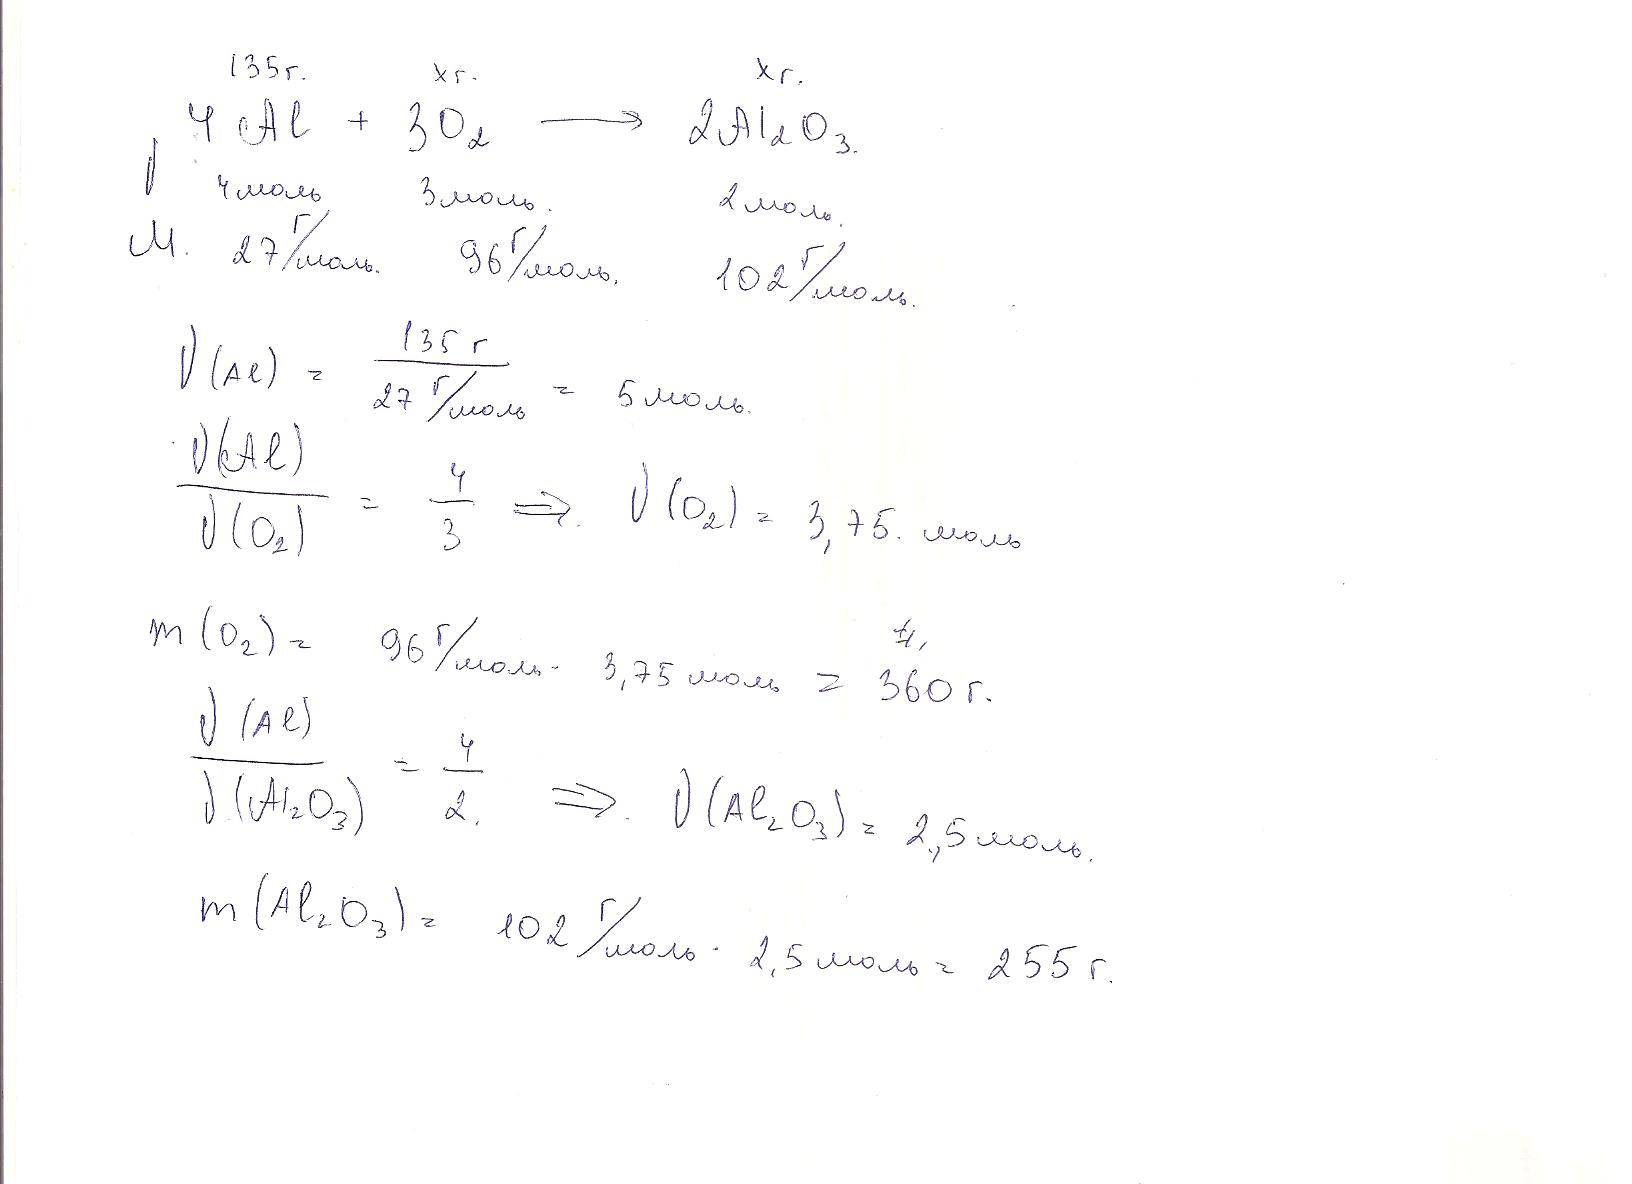 135г. xг. xг.
4Al + 3O₂ ⟶ 2Al₂O₃.
ν 4моль 3моль. 2моль.
M. 27 г/моль. 96 г/моль. 102 г/моль.
ν(Al) = 135 г / 27 г/моль = 5 моль.
ν(Al) / ν(O₂) = 4/3 ⟹. ν(O₂) = 3,75. моль
m(O₂) = 96 г/моль · 3,75 моль = 360 г.
ν(Al) / ν(Al₂O₃) = 4/2. ⟹. ν(Al₂O₃) = 2,5 моль.
m(Al₂O₃) = 102 г/моль · 2,5 моль = 255 г.